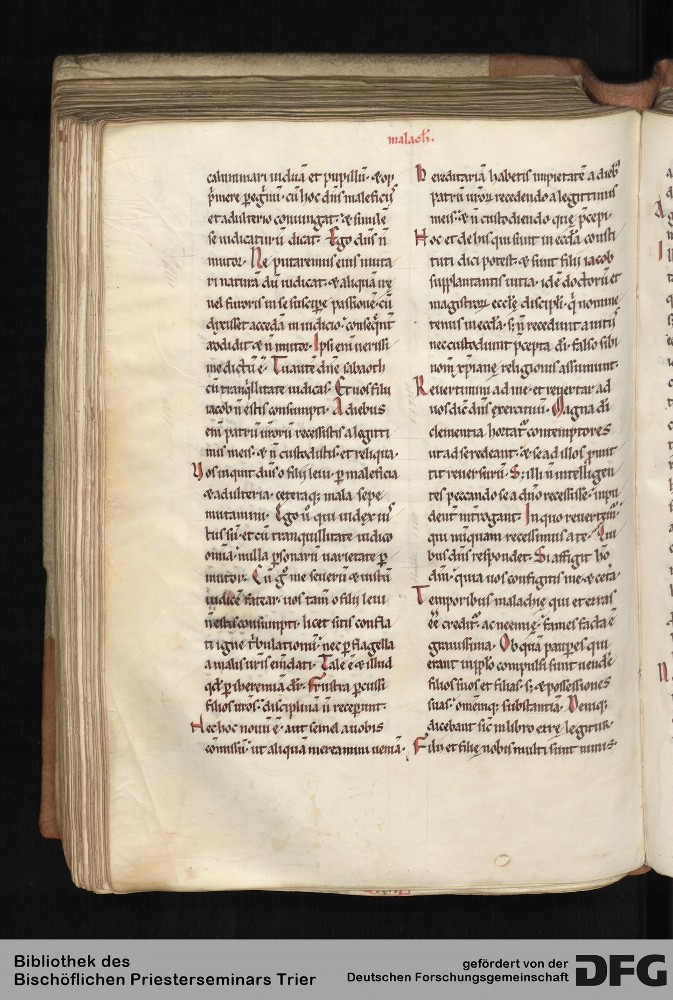 malach̅.
calumniari uiduā et pupillū. & op
p̄mere peregnū. cū hoc dn̄s maleficiis
et adulterio coniungat. & simile
se iudicaturū dicat. Ego dn̄s n̄
mutor. Ne putaremus eius muta
ri naturā dū iudicat. & aliquā ue
uel furoris in se suscipe passionē. cū
dixisset accedā in iudicio. consequnt
addidit & n̄ mutor. Ipsi enī uerissi
me dictū ē. Tu autē dn̄e sabaoth
cū tranqllitate iudicas. Et uos filii
iacob n̄ estis consumpti. A diebus
enī patrū uroru recessistis a legiti
mis meis. & n̄ custodistis. et reliqua.
Vos inquit dn̄s o filii leui. p maleficia
& adulteria. ceteraq; mala sepe
mutamini. Ego u̅ qui iudex ius
tus sū. et cū tranquillitate iudico
omīa. nulla psonarū uarietate p
mutor. Cū g̊ me seuerū & iustū
iudicē fatear. uos tam̄ o filii leui
n̄ estis consumpti. licet sitis confla
ti igne tbulationū. nec p flagella
a malis uris em̄dati. Tale ē & illud
qd̄ p iheremiā dr̄. Frustra pcussi
filios uros. disciplinā n̄ receperunt.
Nec hoc nouū ē. aut semel a uobis
cōmissū. ut aliquā mereamini ueniā.
Hereditariā habetis impietatē a dieb;
patrū uroru recedendo a legittimis
meis. & n̄ custodiendo que pcepi.
Hoc et de his qui sunt in eccla consti
tuti dici potest. & sunt filii iacob
supplantantis uitia. idē doctorū et
magistroru eccle discipli. q̄ nomine
tenus in eccla. s; n̄ recedunt a uitiis
nec custodiunt pcepta dī. falso sibi
nom̄ xpiane religionis assumunt.
Reuertimini ad me. et reuertar ad
uos dic̄ dn̄s exercituū. Magna dī
clementia hortat contemptores
ut ad se redeant. & se ad illos pmit
tit reuersurū. S; illi n̄ intelligen
tes peccando se a dn̄o recessisse. inpu
dent̄ introgant. In quo reuertem̄.
qui nūquam recessimus a te. Qui
bus dn̄s respondet. Si affigit hō
dm̄. quia uos configitis me. & ceta.
Temporibus malachie qui et esras
ēē credit. ac neemie. fames facta ē
grauissima. Ob quā paupes qui
erant in pplo compulsi sunt uende
filios suos et filias. s; & possessiones
suas. omemq; substantiā. Deniq;
dicebant sic in libro esre legitur.
Filii et filie nobis multi sunt nimis.
Bibliothek des
Bischöflichen Priesterseminars Trier
gefördert von der
Deutschen Forschungsgemeinschaft
DFG